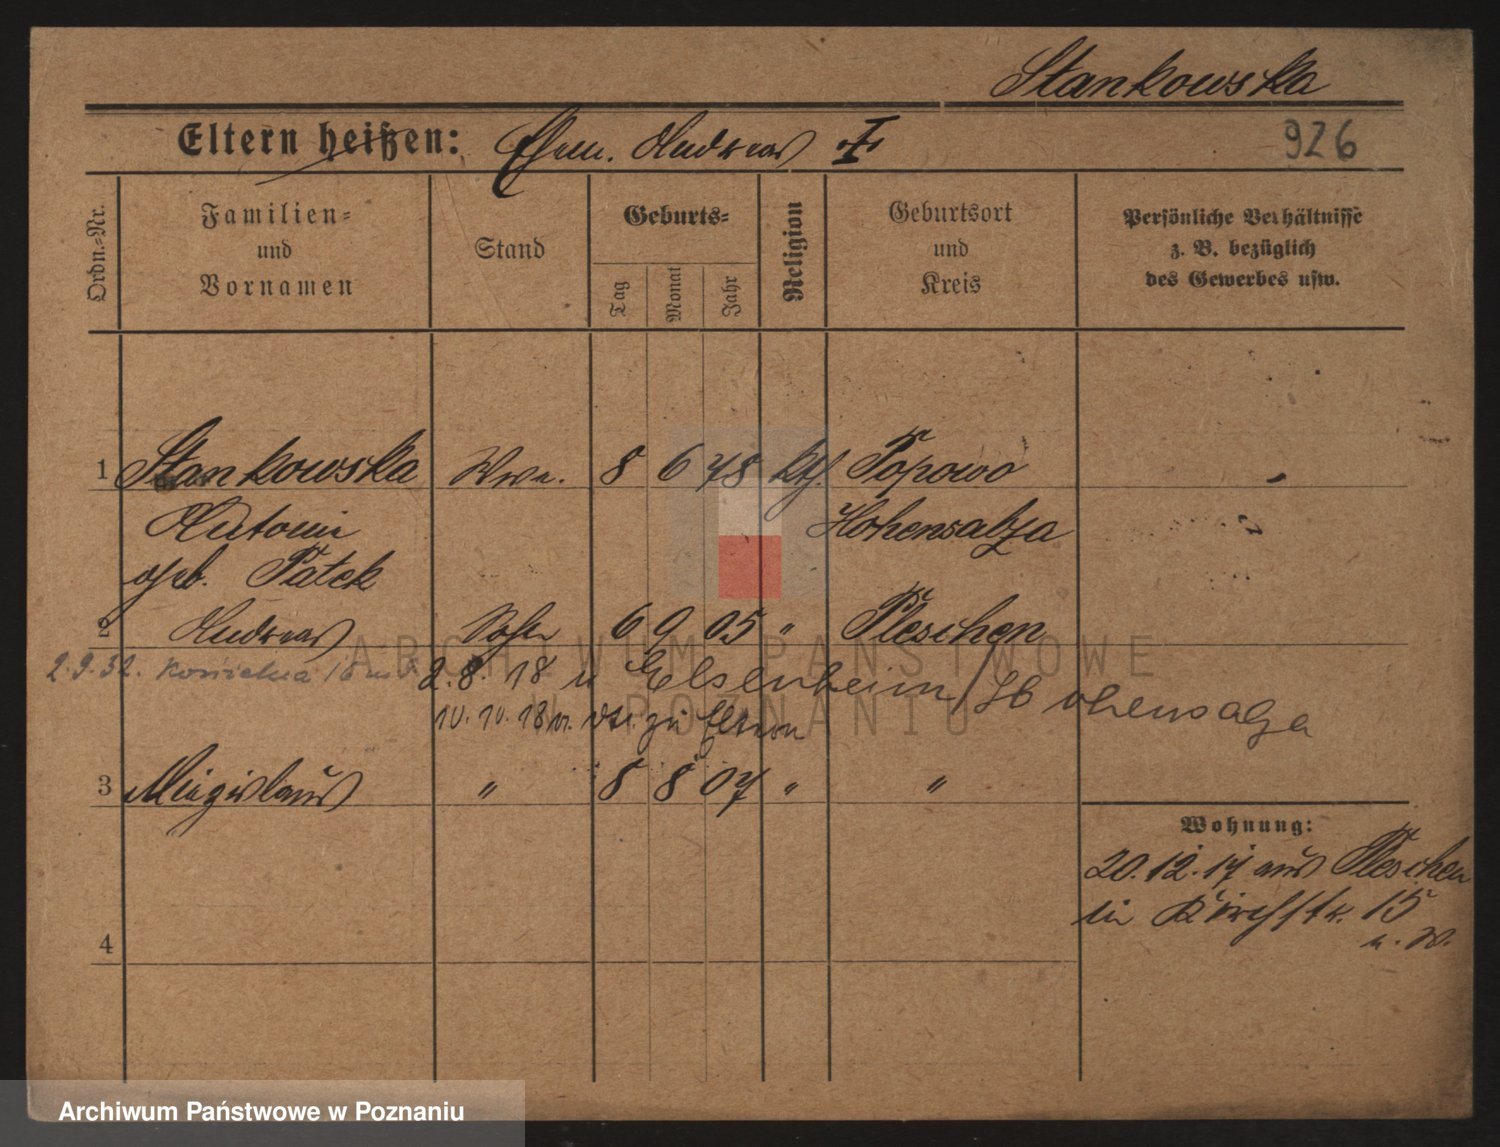 Stankowska
Eltern heißen: Ehem. Andreas †
926
Ordn.-Nr.
Familien-
und
Vornamen
Stand
Geburts-
Tag
Monat
Jahr
Religion
Geburtsort
und
Kreis
Persönliche Verhältnisse
z. B. bezüglich
des Gewerbes usw.
1 Stankowska Wwe. 8 6 78 kth. Popowo "
Antonie Hohensalza
geb. Patek
2 Andreas Sohn 6 9 05 " Pleschen
2.9.32.
2.8.18 n Elsenheim / Hohensalza
10.10.18 zu Eltern
3 Miezislaus " 8 8 07 " "
Wohnung:
20.12.17 aus Pleschen
in Kirchstr. 15
4
ARCHIWUM PAŃSTWOWE
W POZNANIU
Archiwum Państwowe w Poznaniu